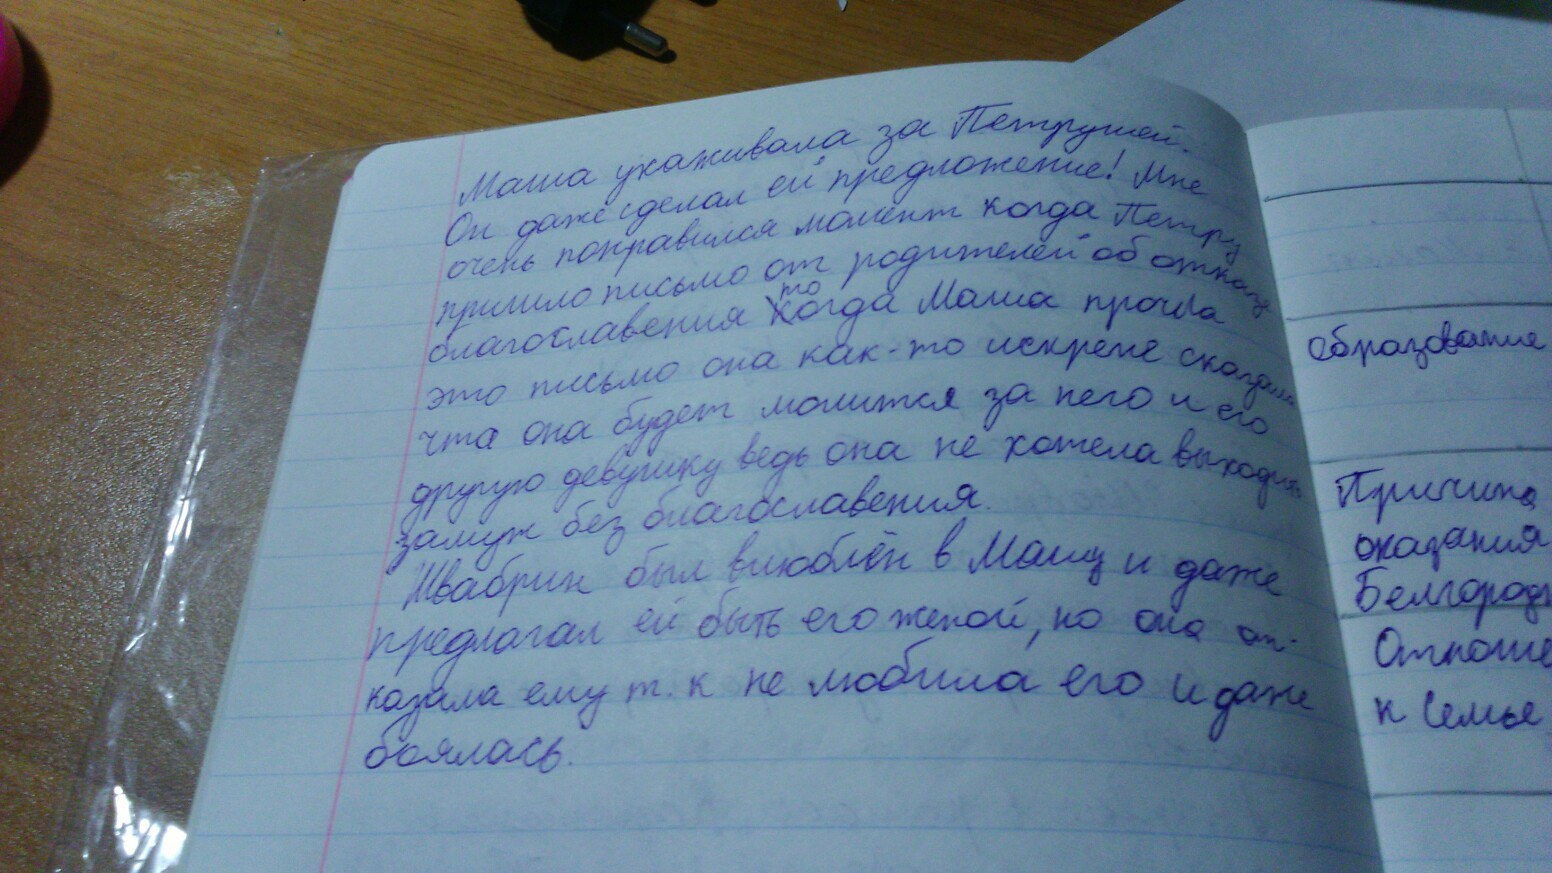 Маша ухаживала за Петрушей.
Он даже сделал ей предложение! Мне
очень понравился момент когда Петру
пришло письмо от родителей об отказе
благославения то когда Маша прочла
это письмо она как-то искрене сказала
чта она будет молится за него и его
другую девушку ведь она не хотела выходить
замуж без благославения.
Швабрин был влюблён в Машу и даже
предлагал ей быть его женой, но она от-
казала ему т.к не любила его и даже
боялась.
образование
Причина
оказания
Белгородs
Отноше
к семье